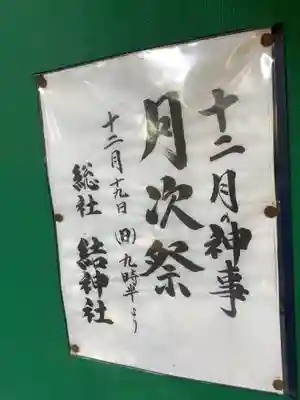 十二月の神事
月次祭
十二月十九日(日)九時半より
総社 結神社